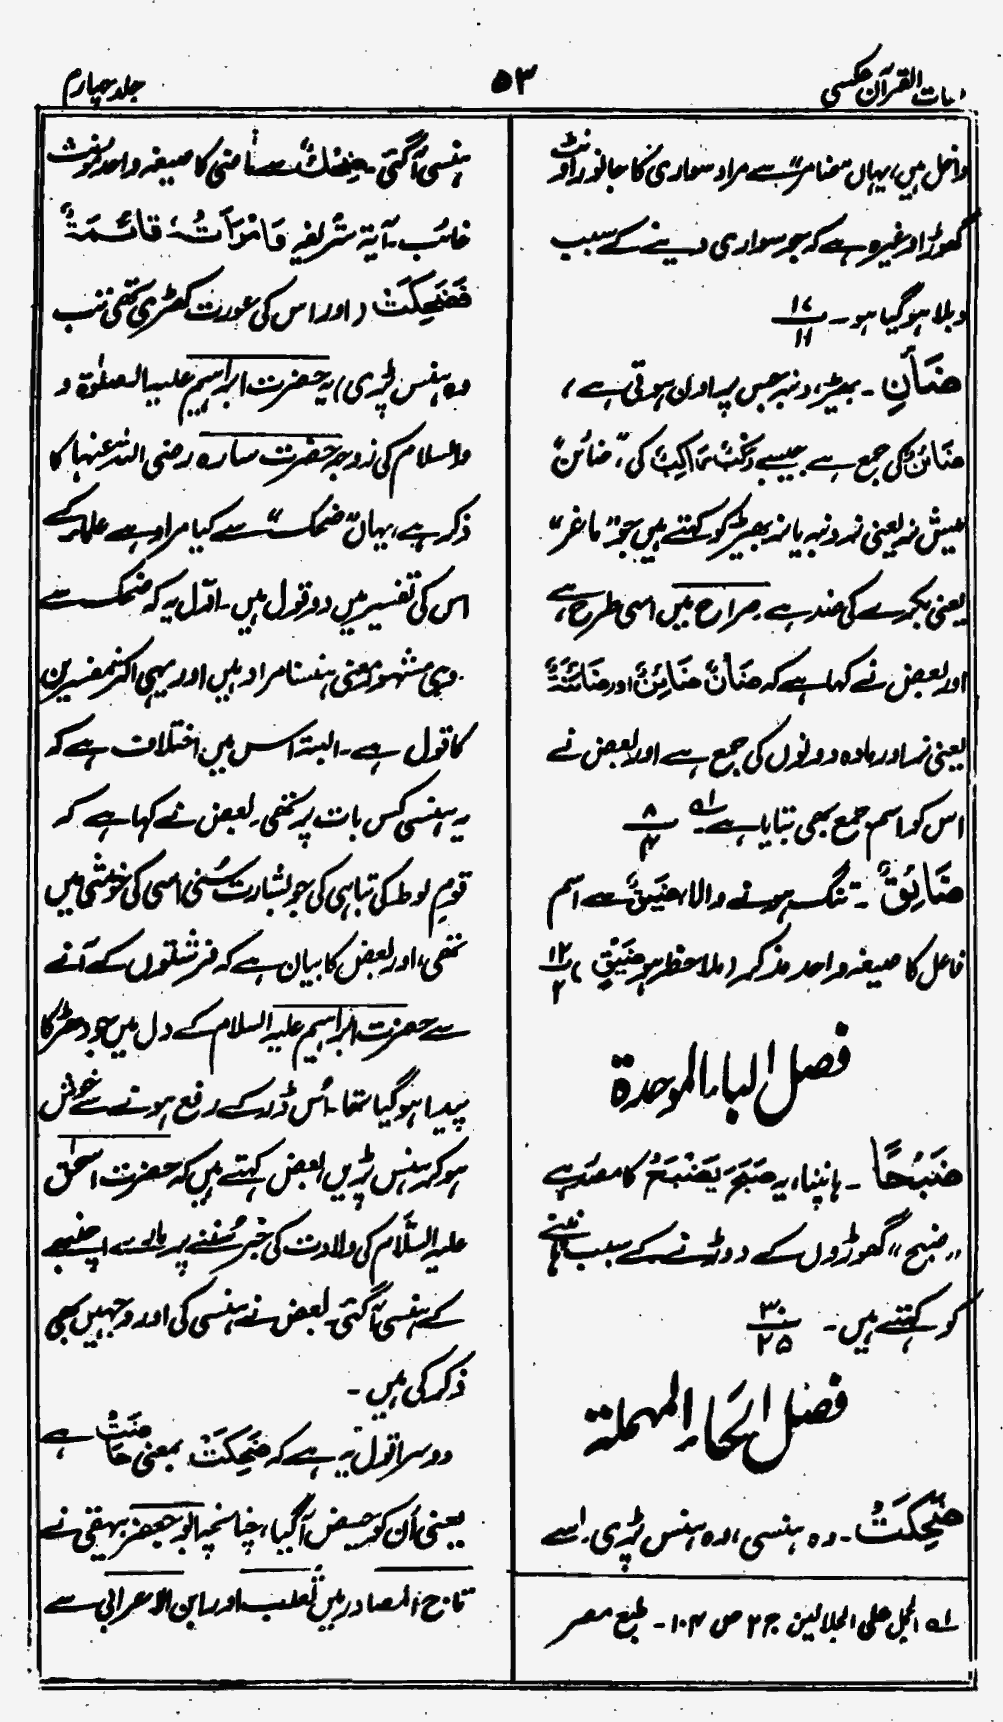 لغات القرآن عکسی
۵۳
جلد چہارم
داخل ہیں، یہاں ”ضامر“ سے مراد سواری کا جانور اونٹ
گھوڑا وغیرہ ہے کہ جو سواری دینے کے سبب
دبلا ہوگیا ہو۔ ۱۷/۱۱
ضَأْنِ۔ بھیڑ، دنبہ جس پر اون ہوتی ہے،
ضَائِنٌ کی جمع ہے جیسے رَکْبٌ رَاکِبٌ کی، ”ضَائِنٌ“
میش نر یعنی نر دنبہ یا نر بھیڑ کو کہتے ہیں جو ”ماعز“
یعنی بکرے کی ضد ہے صراح میں اسی طرح ہے،
اور بعض نے کہا ہے کہ ضَأْنٌ ضَائِنٌ اور ضَائِنَةٌ
یعنی نر اور مادہ دونوں کی جمع ہے اور بعض نے
اس کو اسم جمع بھی بتایا ہے۔ ؎۱ ۸/۴
ضَائِقٌ۔ تنگ ہونے والا، ضَیْقٌ سے اسم
فاعل کا صیغہ واحد مذکر (ملاحظہ ہو ضَیْقٍ) ۱۲/۲
فصل الباء الموحدة
ضَبْحًا۔ ہانپنا، یہ ضَبَحَ یَضْبَحُ کا مصدر ہے
”ضبح“ گھوڑوں کے دوڑنے کے سبب ہانپنے
کو کہتے ہیں۔ ۳۰/۲۵
فصل الحاء المهملة
ضَحِکَتْ۔ وہ ہنسی، وہ ہنس پڑی۔ اسے
؎۱ الجمل علی الجلالین ج ۲ ص ۱۰۴۔ طبع مصر
ہنسی آگئی۔ ضِحْكٌ سے ماضی کا صیغہ واحد مؤنث
غائب۔ آیۃ شریفہ وَامْرَأَتُهٗ قَائِمَةٌ
فَضَحِكَتْ (اور اس کی عورت کھڑی تھی تب
وہ ہنس پڑی) یہ حضرت ابراہیم علیہ الصلوٰۃ و
والسلام کی زوجہ حضرت سارہ رضی اللہ عنہا کا
ذکر ہے، یہاں ”ضحک“ سے کیا مراد ہے علماء کے
اس کی تفسیر میں دو قول ہیں۔ اوّل یہ کہ ضحک سے
وہی مشہور معنی ہنسنا مراد ہیں اور یہی اکثر مفسرین
کا قول ہے۔ البتہ اس میں اختلاف ہے کہ
یہ ہنسی کس بات پر تھی۔ بعض نے کہا ہے کہ
قومِ لوط کی تباہی کی جو بشارت سُنی اسی کی خوشی میں
تھی، اور بعض کا بیان ہے کہ فرشتوں کے آنے
سے حضرت ابراہیم علیہ السلام کے دل میں جو دھڑکا
پیدا ہوگیا تھا۔ اُس ڈر کے رفع ہونے سے خوش
ہوکر ہنس پڑیں بعض کہتے ہیں کہ حضرت اسحٰق
علیہ السَّلام کی ولادت کی خبر سُننے پر مارے اچنبھے
کے ہنسی آگئی۔ بعض نے ہنسی کی اور وجہیں بھی
ذکر کی ہیں۔
دوسرا قول یہ ہے کہ ضَحِکَتْ بمعنی حَاضَتْ ہے
یعنی اُن کو حیض آگیا، چنانچہ ابوجعفر بیہقی نے
تاج المصادر میں ثعلب اور ابن الاعرابی سے